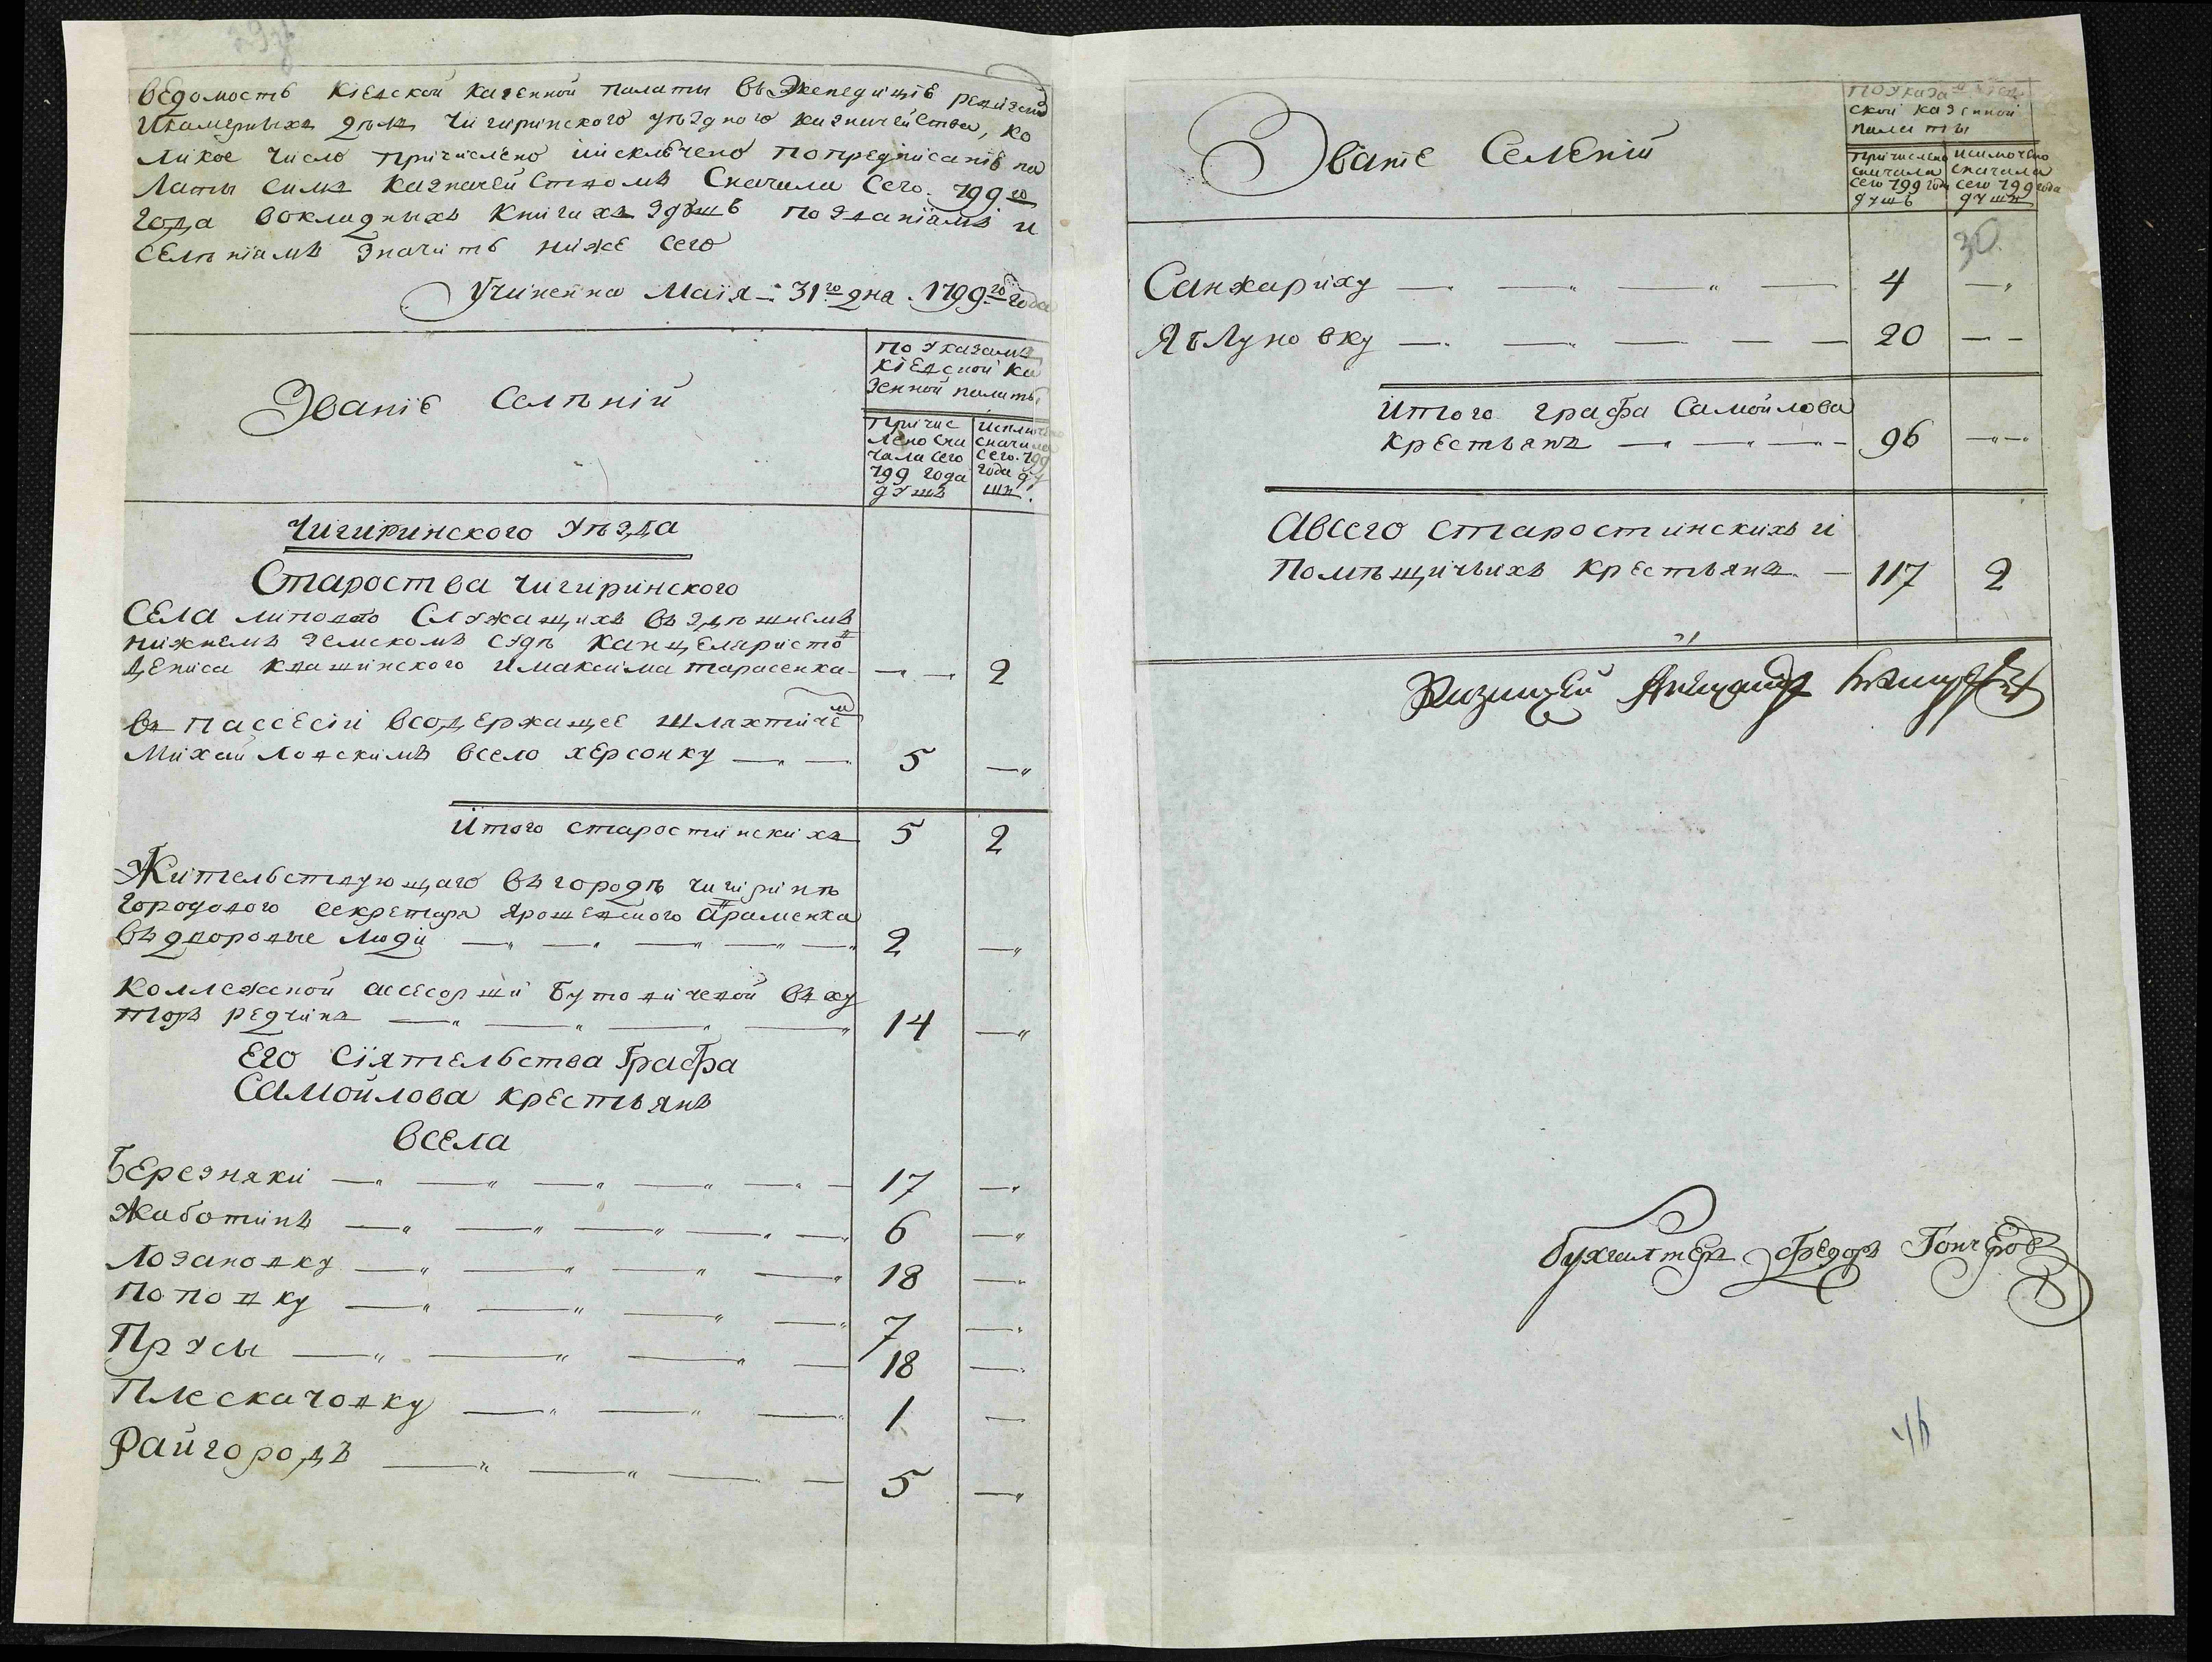 Ведомость Кіевской казенной палаты въ Экспедицію ревизскихъ
и камерныхъ дѣлъ Чигиринского уѣздного казначейства, ко
ликое число причислено и исключено по предписанію па
латы симъ казначействомъ сначала сего 799го
года вокладныхъ книгахъ здѣшъ по званіямъ и
селѣніямъ значитъ ниже сего
Учиненна Маія 31го дна 1799го года
Званіе Селѣній
по указамъ
Кіевской ка
зенной палаты
Причис
лено сна
чала сего
799 года
душъ
Исключено
сначала
сего 799
года ду
шъ.
Чигиринского Уѣзда
Староства Чигиринского
Села Липовово служащихъ въ здѣшнемъ
нижнемъ земскомъ судѣ канцеляристовъ
Дениса Квашинского и Максима Тарасенка — 2
въ пассесіи всодержащее шляхтиче
Михайловскимъ всело Херсонку 5 —
Итого старостинскихъ 5 2
Жительствующаго въ городѣ Чигиринѣ
городового секретаря Ярошевского
въ дворовые люди 2 —
Коллежской асесорши Бутовичевой въ ху
торъ Редчинъ 14 —
Его Сіятельства Графа
Самойлова крестьянъ
всела
Березняки 17 —
Жаботинъ 6 —
Лозановку 18 —
Поповку 7 —
Прусы 18 —
Плескачовку 1 —
Райгородъ 5 —
Званіе Селеній
по указамъ Кіев
ской казенной
палаты
Причислено
сначала
сего 799 года
душъ
исключено
сначала
сего 799 года
душъ
30
Санжариху 4 —
Яблуновку 20 —
Итого графа Самойлова
крестьянъ 96 —
Авсего старостинскихъ и
помѣщичьихъ крестьянъ 117 2
бухгалтеръ Федоръ Гончеровъ